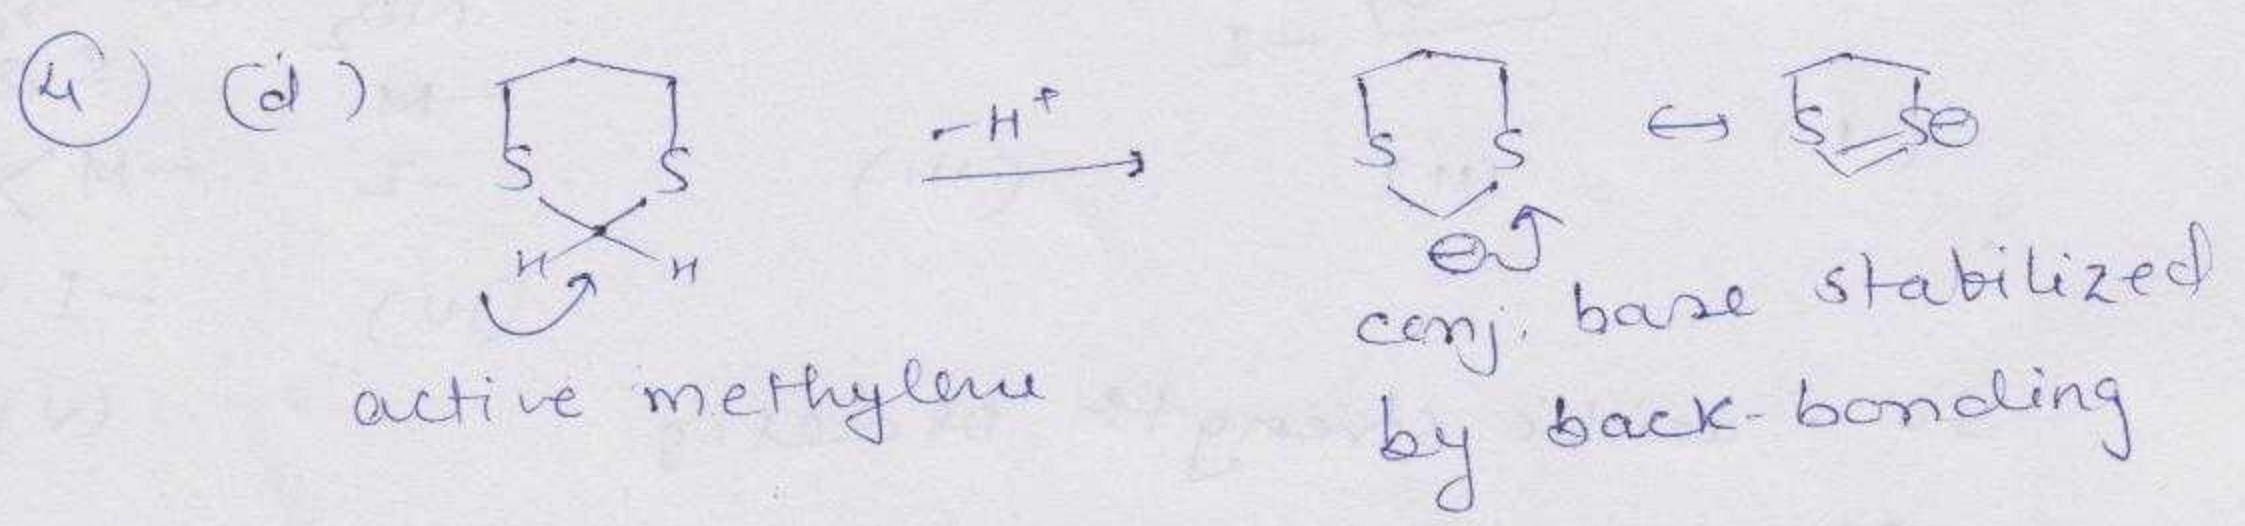 4 (d)
S S
H H
-H⁺
S S
⊖
↔
S S⊖
active methylene
conj. base stabilized
by back-bonding